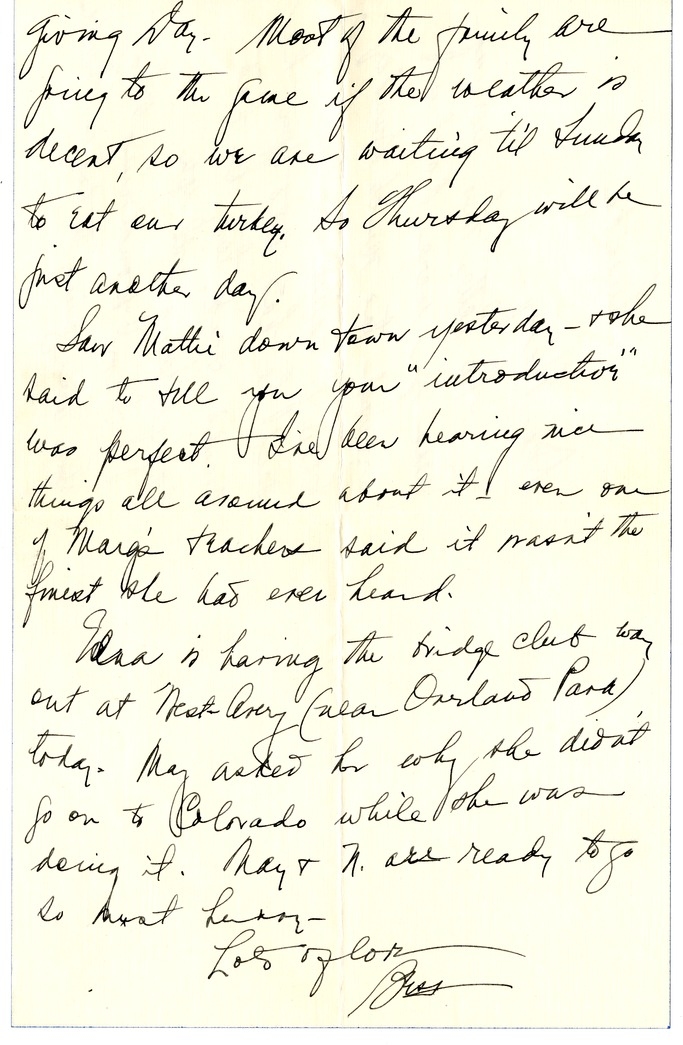 giving Day. Most of the family are
going to the game if the weather is
decent, so we are waiting 'til Sunday
to eat our turkey. So Thursday will be
just another day.
Saw Mattie down town yesterday - & she
said to tell you your "introduction"
was perfect. I've been hearing nice
things all around about it - even one
of Marg's teachers said it was the
finest she had ever heard.
Edna is having the bridge club way
out at West-Avery (near Overland Park)
today. May asked her why she didn't
go on to Colorado while she was
doing it. May & N. are ready to go
so must hurry -
Lots of love
Bess